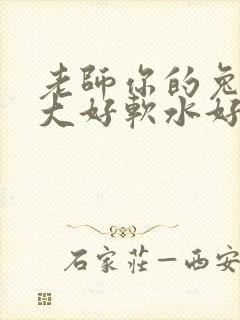 老師你的兔
大好軟水好
石家莊—西安